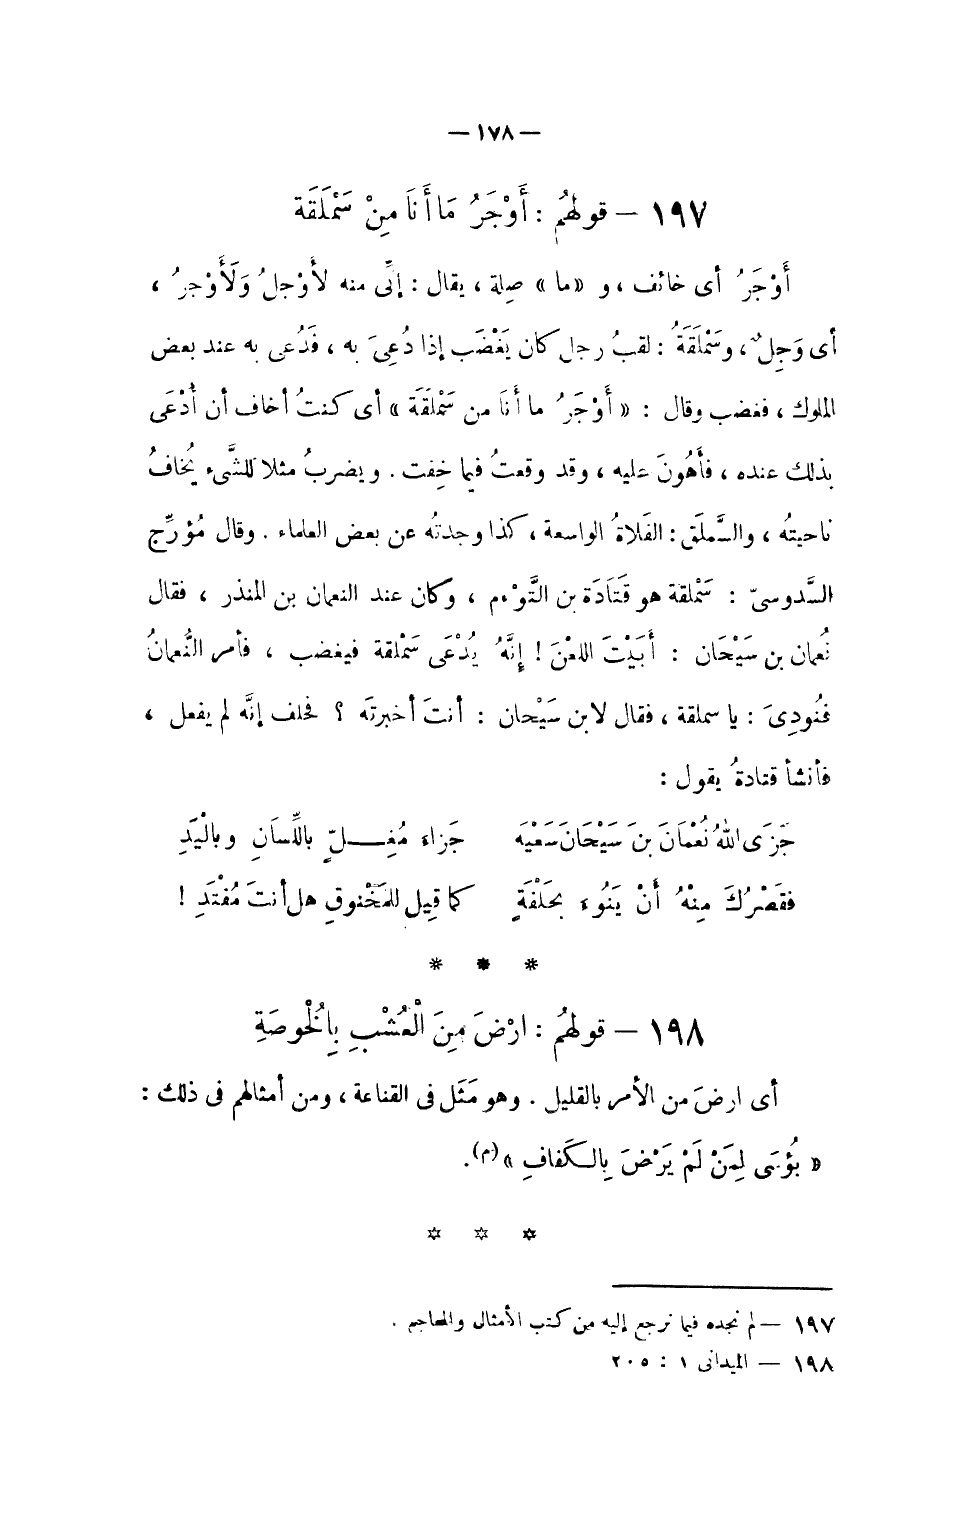 — ١٧٨ —
١٩٧ — قولهُم : أَوْجَرُ مَا أَنَا مِنْ سَمْلَقَة
أَوْجَرُ أى خائف ، و « ما » صِلة ، يقال : إنِّى منه لأَوْجلُ وَلَأَوْجرُ ،
أى وَجِلٌ ، وسَمْلَقَةُ : لقبُ رجل كان يَغْضَب إذا دُعِىَ به ، فَدُعى به عند بعض
الملوك ، فغضب وقال : « أَوْجَرُ ما أَنَا من سَمْلَقَة » أى كنتُ أخاف أن أُدْعَى
بذلك عنده ، فأَهُونَ عليه ، وقد وقعتُ فيما خِفت . ويضربُ مثلا للشَّىء يُخافُ
ناحيتُه ، والسَّملَق : الفَلاةُ الواسعة ، كذا وجدتُه عن بعض العلماء . وقال مُؤرِّج
السَّدوسىّ : سَمْلقة هو قَتَادَة بن التَّوْءم ، وكان عند النعمان بن المنذر ، فقال
نُعمان بن سَيْحَان : أَبَيْتَ اللعْنَ ! إنَّهُ يُدْعَى سَمْلقة فيغضب ، فأمر النُّعمانُ
فنُودِىَ : يا سملقة ، فقال لابن سَيْحان : أنتَ أخبرتَه ؟ فحلف إنَّه لم يفعل ،
فأنشأ قتادةُ يقول :
جَزَى اللهُ نُعْمَانَ بنَ سَيْحَانَ سَعْيَه جَزاءَ مُغِـلٍّ باللِّسَانِ وبالْيَدِ
فقَصْرُكَ مِنْهُ أَنْ يَنُوءَ بحَلْفَةٍ كما قِيل للمَخْنوقِ هل أنتَ مُفْتَدِ !
* * *
١٩٨ — قولهُم : ارْضَ مِنَ الْعُشْبِ بِالْخُوصَةِ
أى ارضَ من الأمر بالقليل . وهو مَثَل فى القناعة ، ومن أمثالهم فى ذلك :
« بُؤسَى لِمَنْ لَمْ يَرْضَ بِالكَفافِ »(م).
* * *
١٩٧ — لم نجده فيما نرجع إليه من كتب الأمثال والمعاجم .
١٩٨ — الميدانى ١ : ٢٠٥